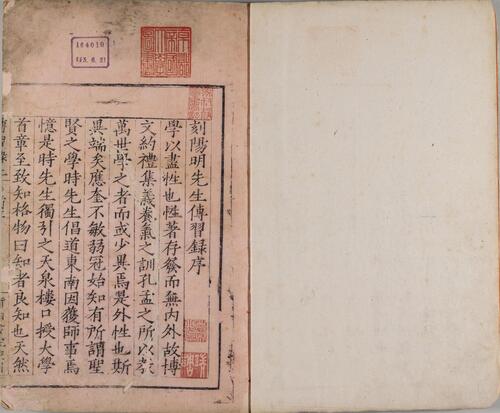 164010
刻陽明先生傳習録序
學以盡性也性者存發而無内外故博
文約禮集義養氣之訓孔孟之所以敎
萬世學之者而或少異焉是外性也斯
異端矣應奎不敏弱冠始知有所謂聖
賢之學時先生倡道東南因獲師事焉
憶是時先生獨引之天泉樓口授大學
首章至致知格物曰知者良知也天然